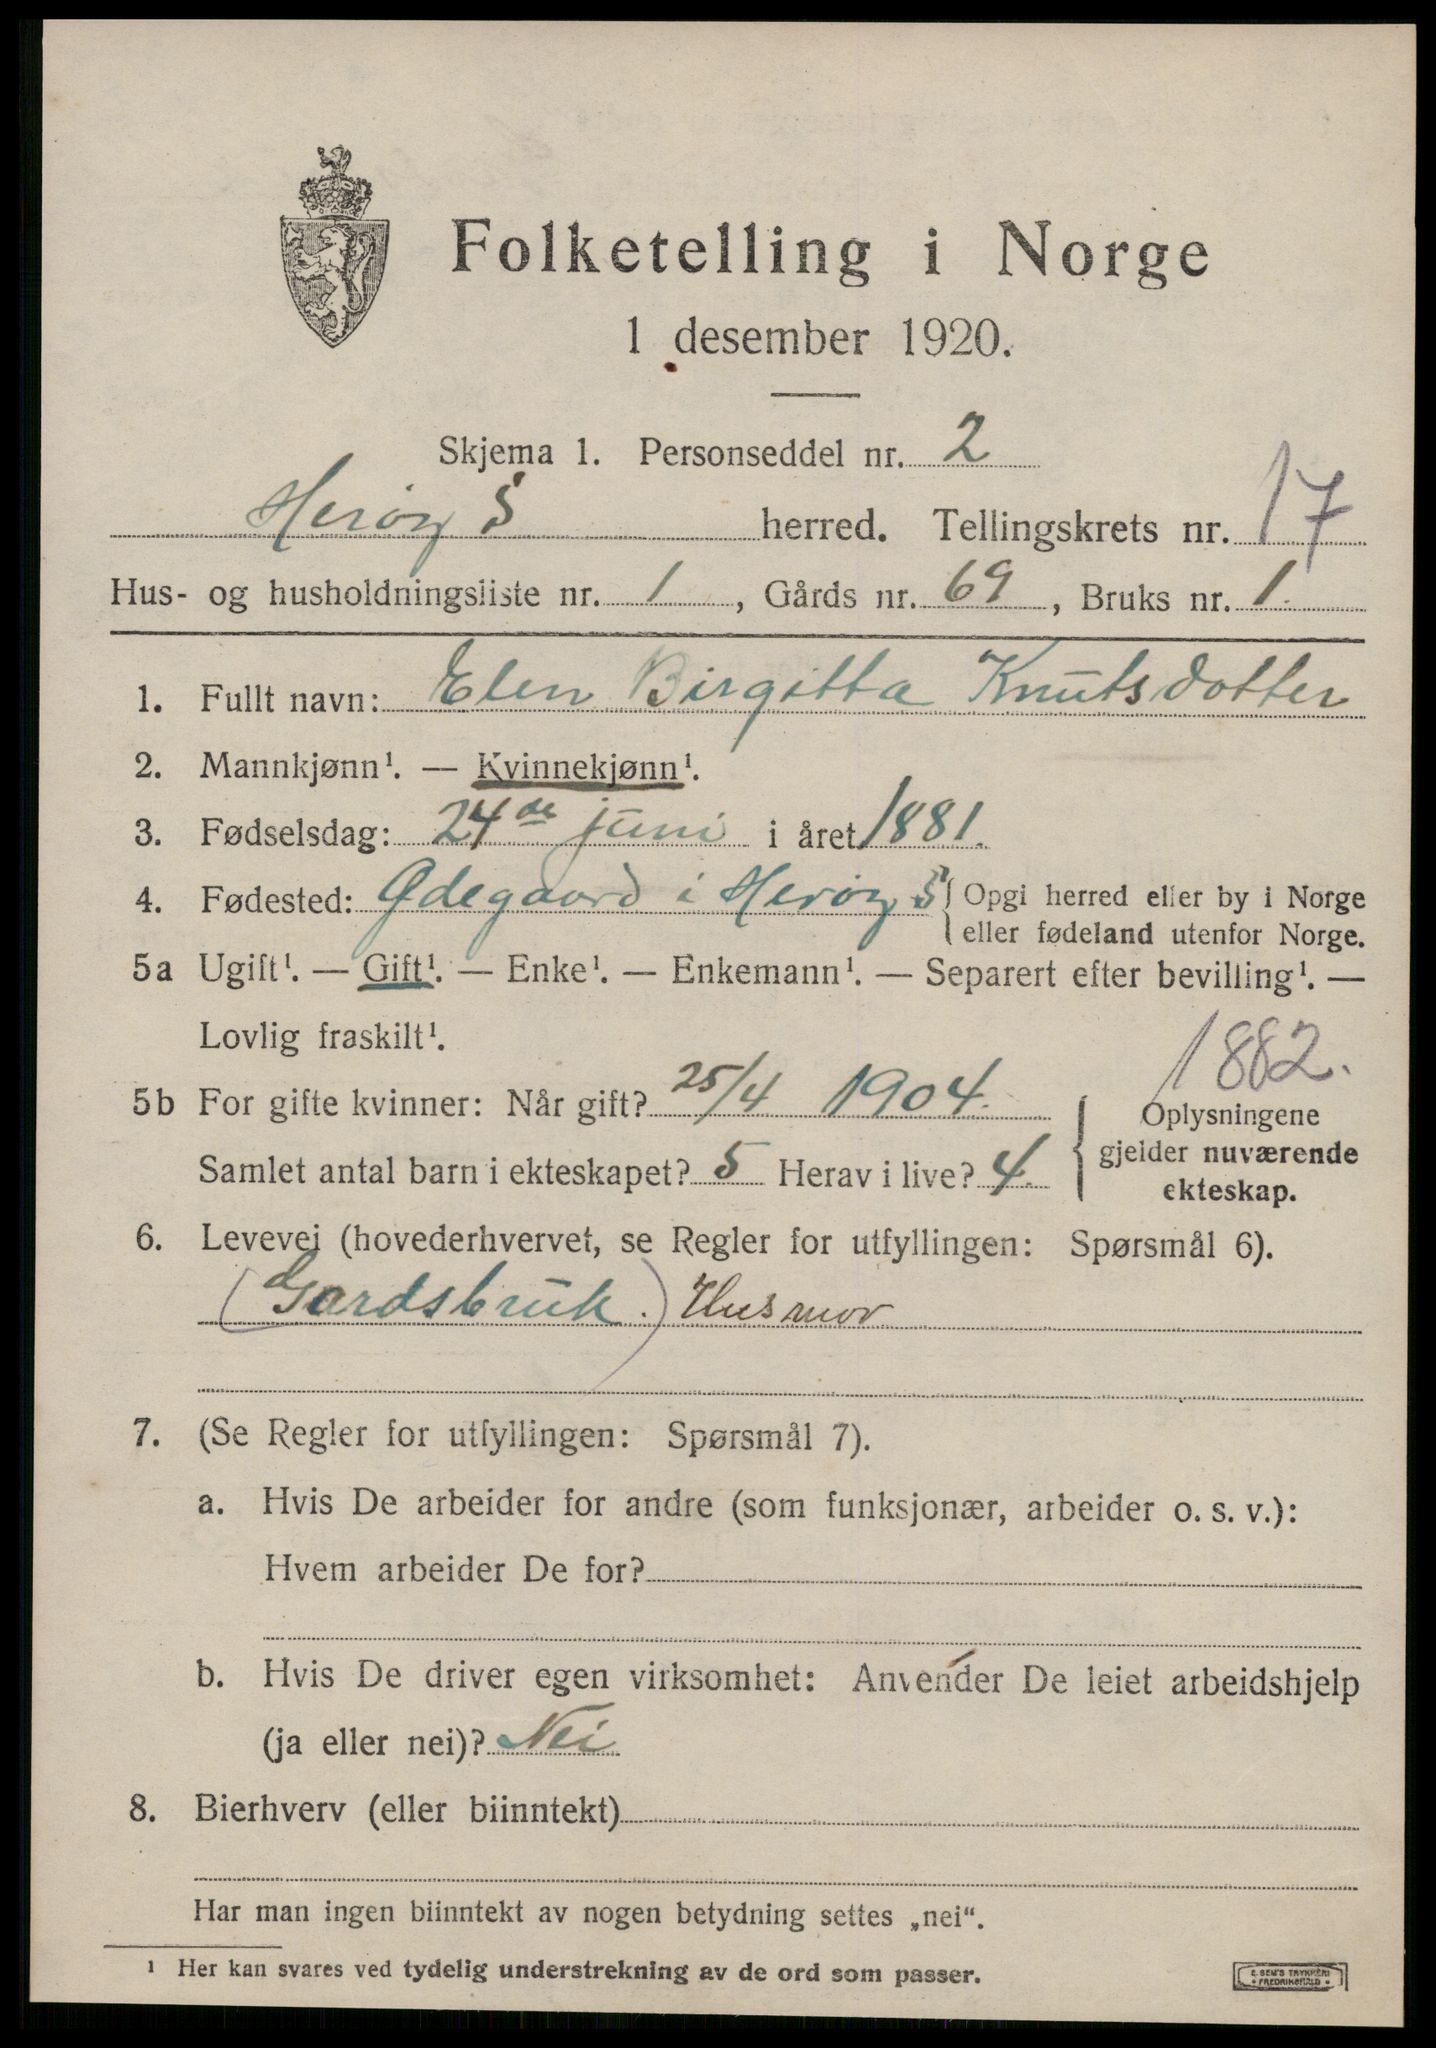 Folketelling i Norge
1 desember 1920.
Skjema 1. Personseddel nr. 2
Herøy S herred. Tellingskrets nr. 17
Hus- og husholdningsliste nr. 1, Gårds nr. 69, Bruks nr. 1.
1. Fullt navn: Elen Birgitta Knutsdotter
2. Mannkjønn¹. — Kvinnekjønn¹.
3. Fødselsdag: 24de juni i året 1881.
4. Fødested: Ødegaard i Herøy S { Opgi herred eller by i Norge
eller fødeland utenfor Norge.
5a Ugift¹. — Gift¹. — Enke¹. — Enkemann¹. — Separert efter bevilling¹. —
Lovlig fraskilt¹.
1882.
5b For gifte kvinner: Når gift? 25/4 1904. { Oplysningene
gjelder nuværende
Samlet antal barn i ekteskapet? 5 Herav i live? 4.
ekteskap.
6. Levevei (hovederhvervet, se Regler for utfyllingen: Spørsmål 6).
(Gardsbruk.) Husmor
7. (Se Regler for utfyllingen: Spørsmål 7).
a. Hvis De arbeider for andre (som funksjonær, arbeider o. s. v.):
Hvem arbeider De for?
b. Hvis De driver egen virksomhet: Anvender De leiet arbeidshjelp
(ja eller nei)? Nei
8. Bierhverv (eller biinntekt)
Har man ingen biinntekt av nogen betydning settes „nei“.
¹ Her kan svares ved tydelig understrekning av de ord som passer.
E. SEM'S TRYKKERI
FREDRIKSHALD